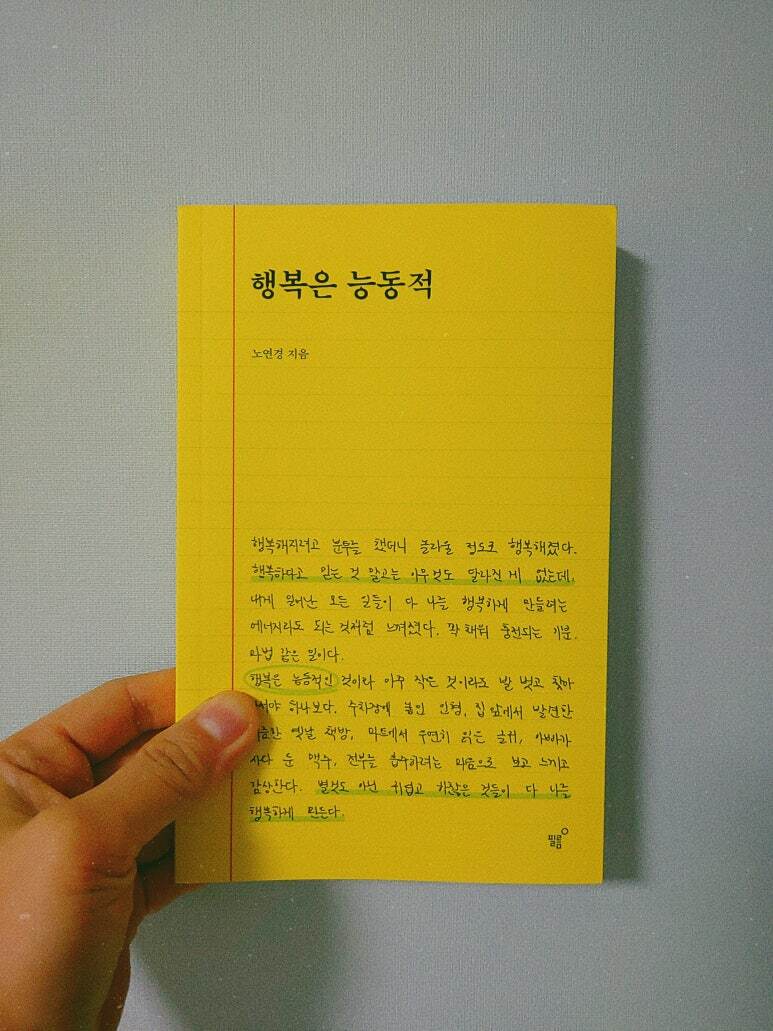 행복은 능동적
노연경 지음
행복해지려고 분투를 했더니 놀라울 정도로 행복해졌다.
행복하다고 믿는 것 말고는 아무것도 달라진 게 없는데,
내게 일어난 모든 일들이 다 나를 행복하게 만들려는
에너지라도 되는 것처럼 느껴졌다. 꽉 채워 충전되는 기분.
마법 같은 일이다.
행복은 능동적인 것이라 아주 작은 것이라도 발 벗고 찾아
하나보다. 수차장에 붙인 인형, 집 앞에서 발견한
옛날 책방, 마트에서 우연히 읽은 글귀, 아빠가
사다 둔 맥주, 전부를 흡수하려는 마음으로 보고 느끼고
감상한다. 별것도 아닌 귀엽고 하찮은 것들이 다 나를
행복하게 만든다.
필름